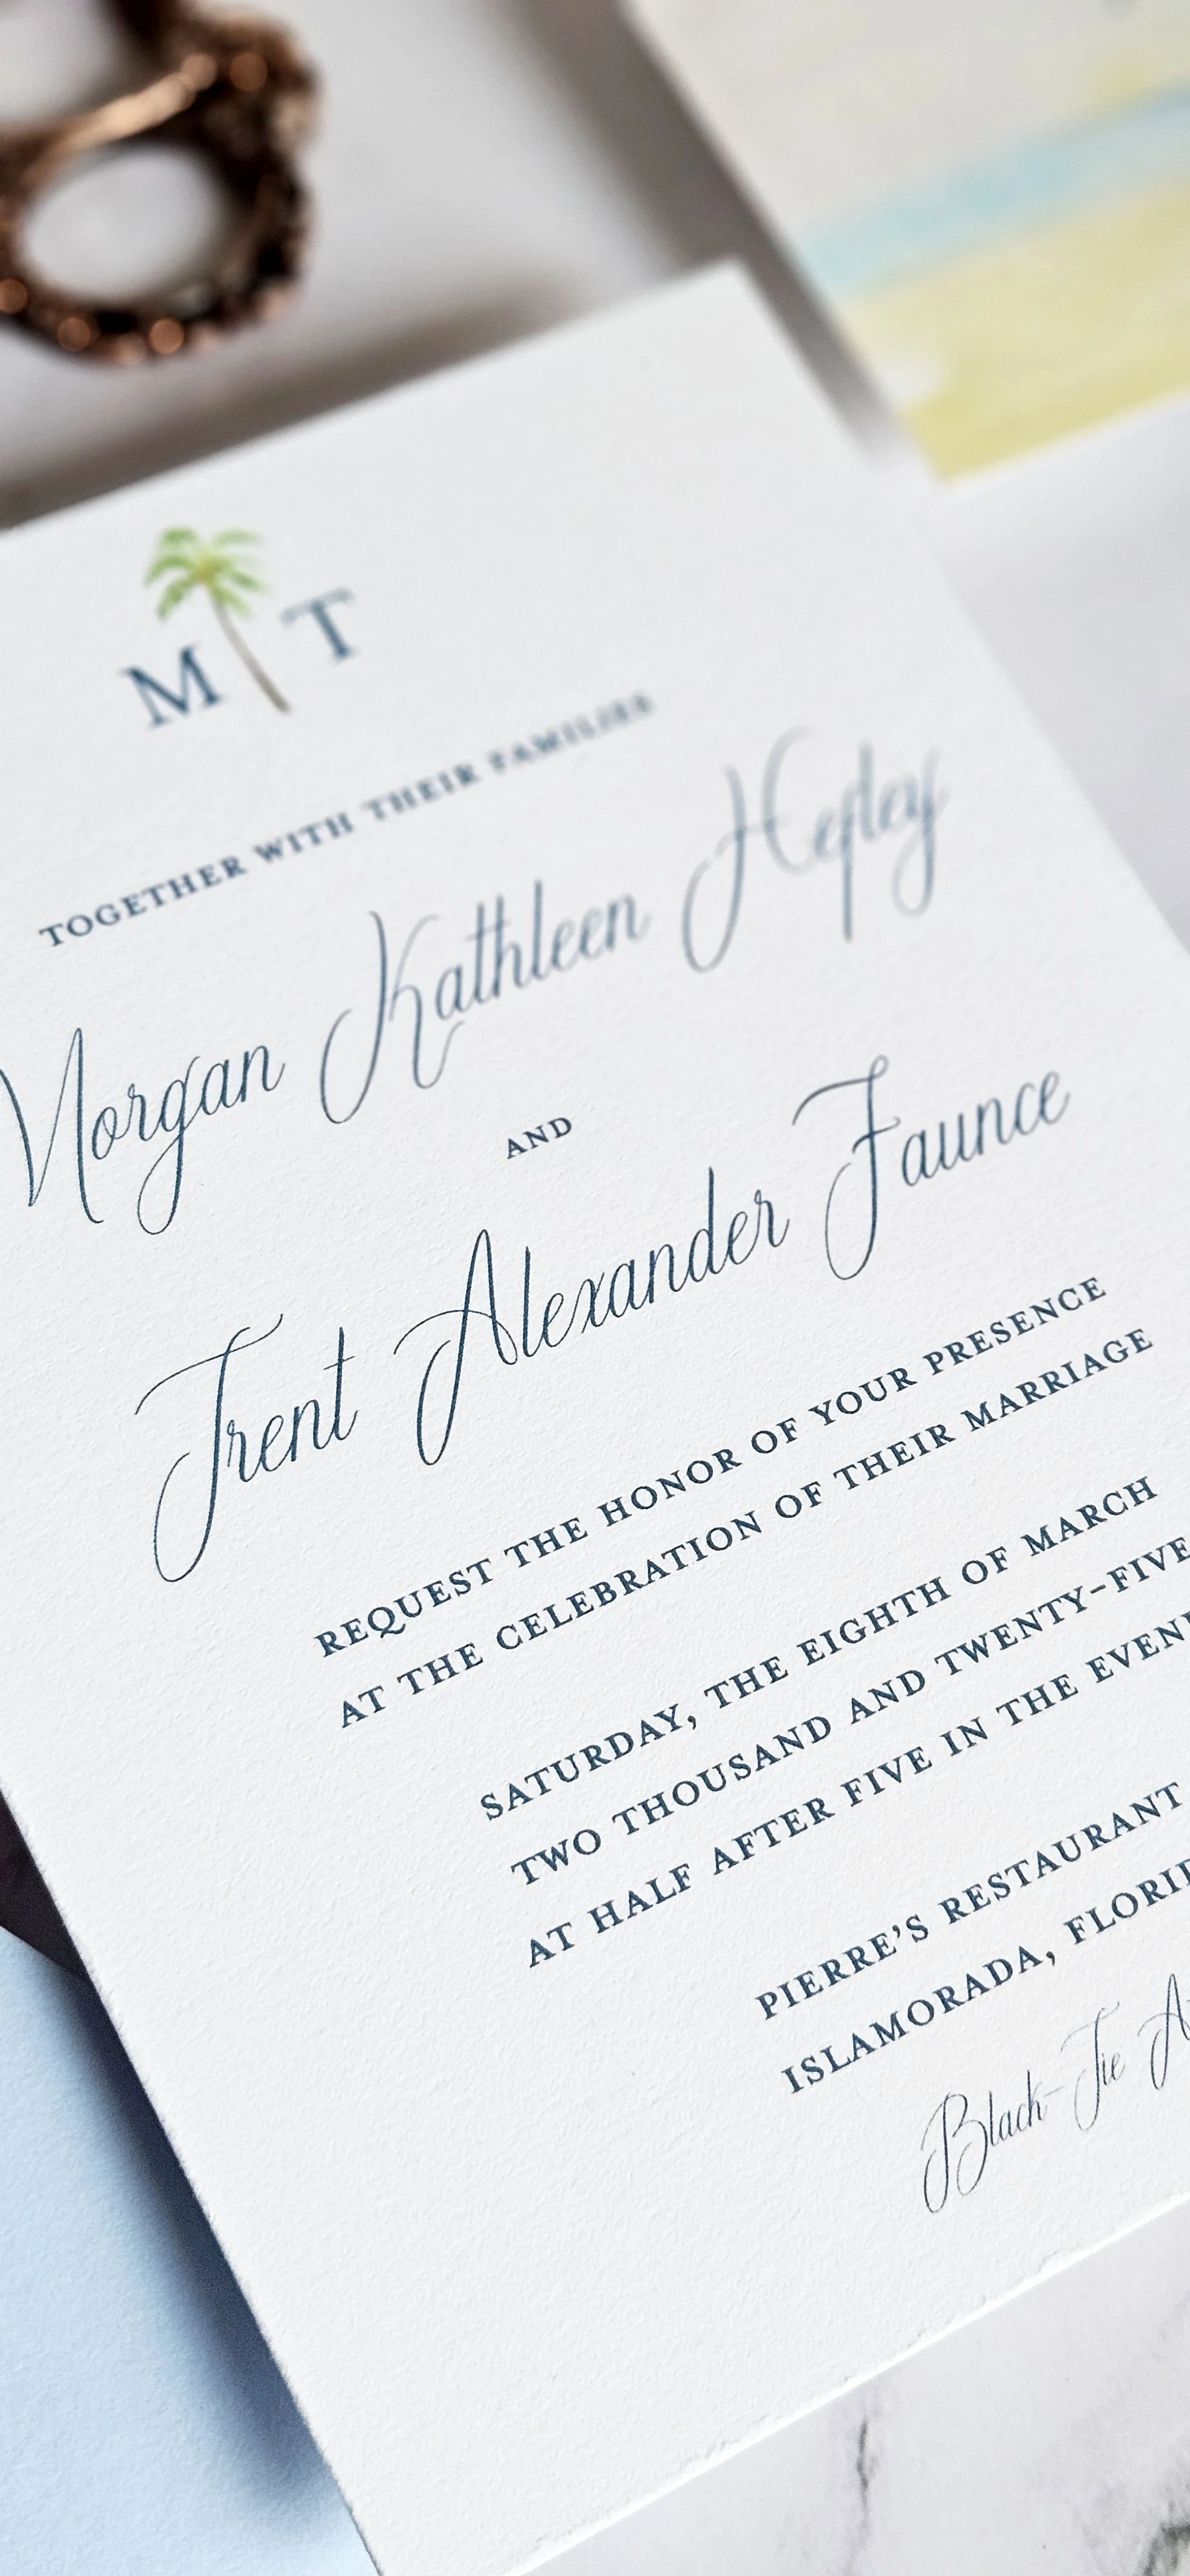 M T
TOGETHER WITH THEIR FAMILIES
Morgan Kathleen Hepley
AND
Trent Alexander Faunce
REQUEST THE HONOR OF YOUR PRESENCE
AT THE CELEBRATION OF THEIR MARRIAGE
SATURDAY, THE EIGHTH OF MARCH
TWO THOUSAND AND TWENTY-FIVE
AT HALF AFTER FIVE IN THE
PIERRE'S RESTAURANT
ISLAMORADA,
Black-Tie